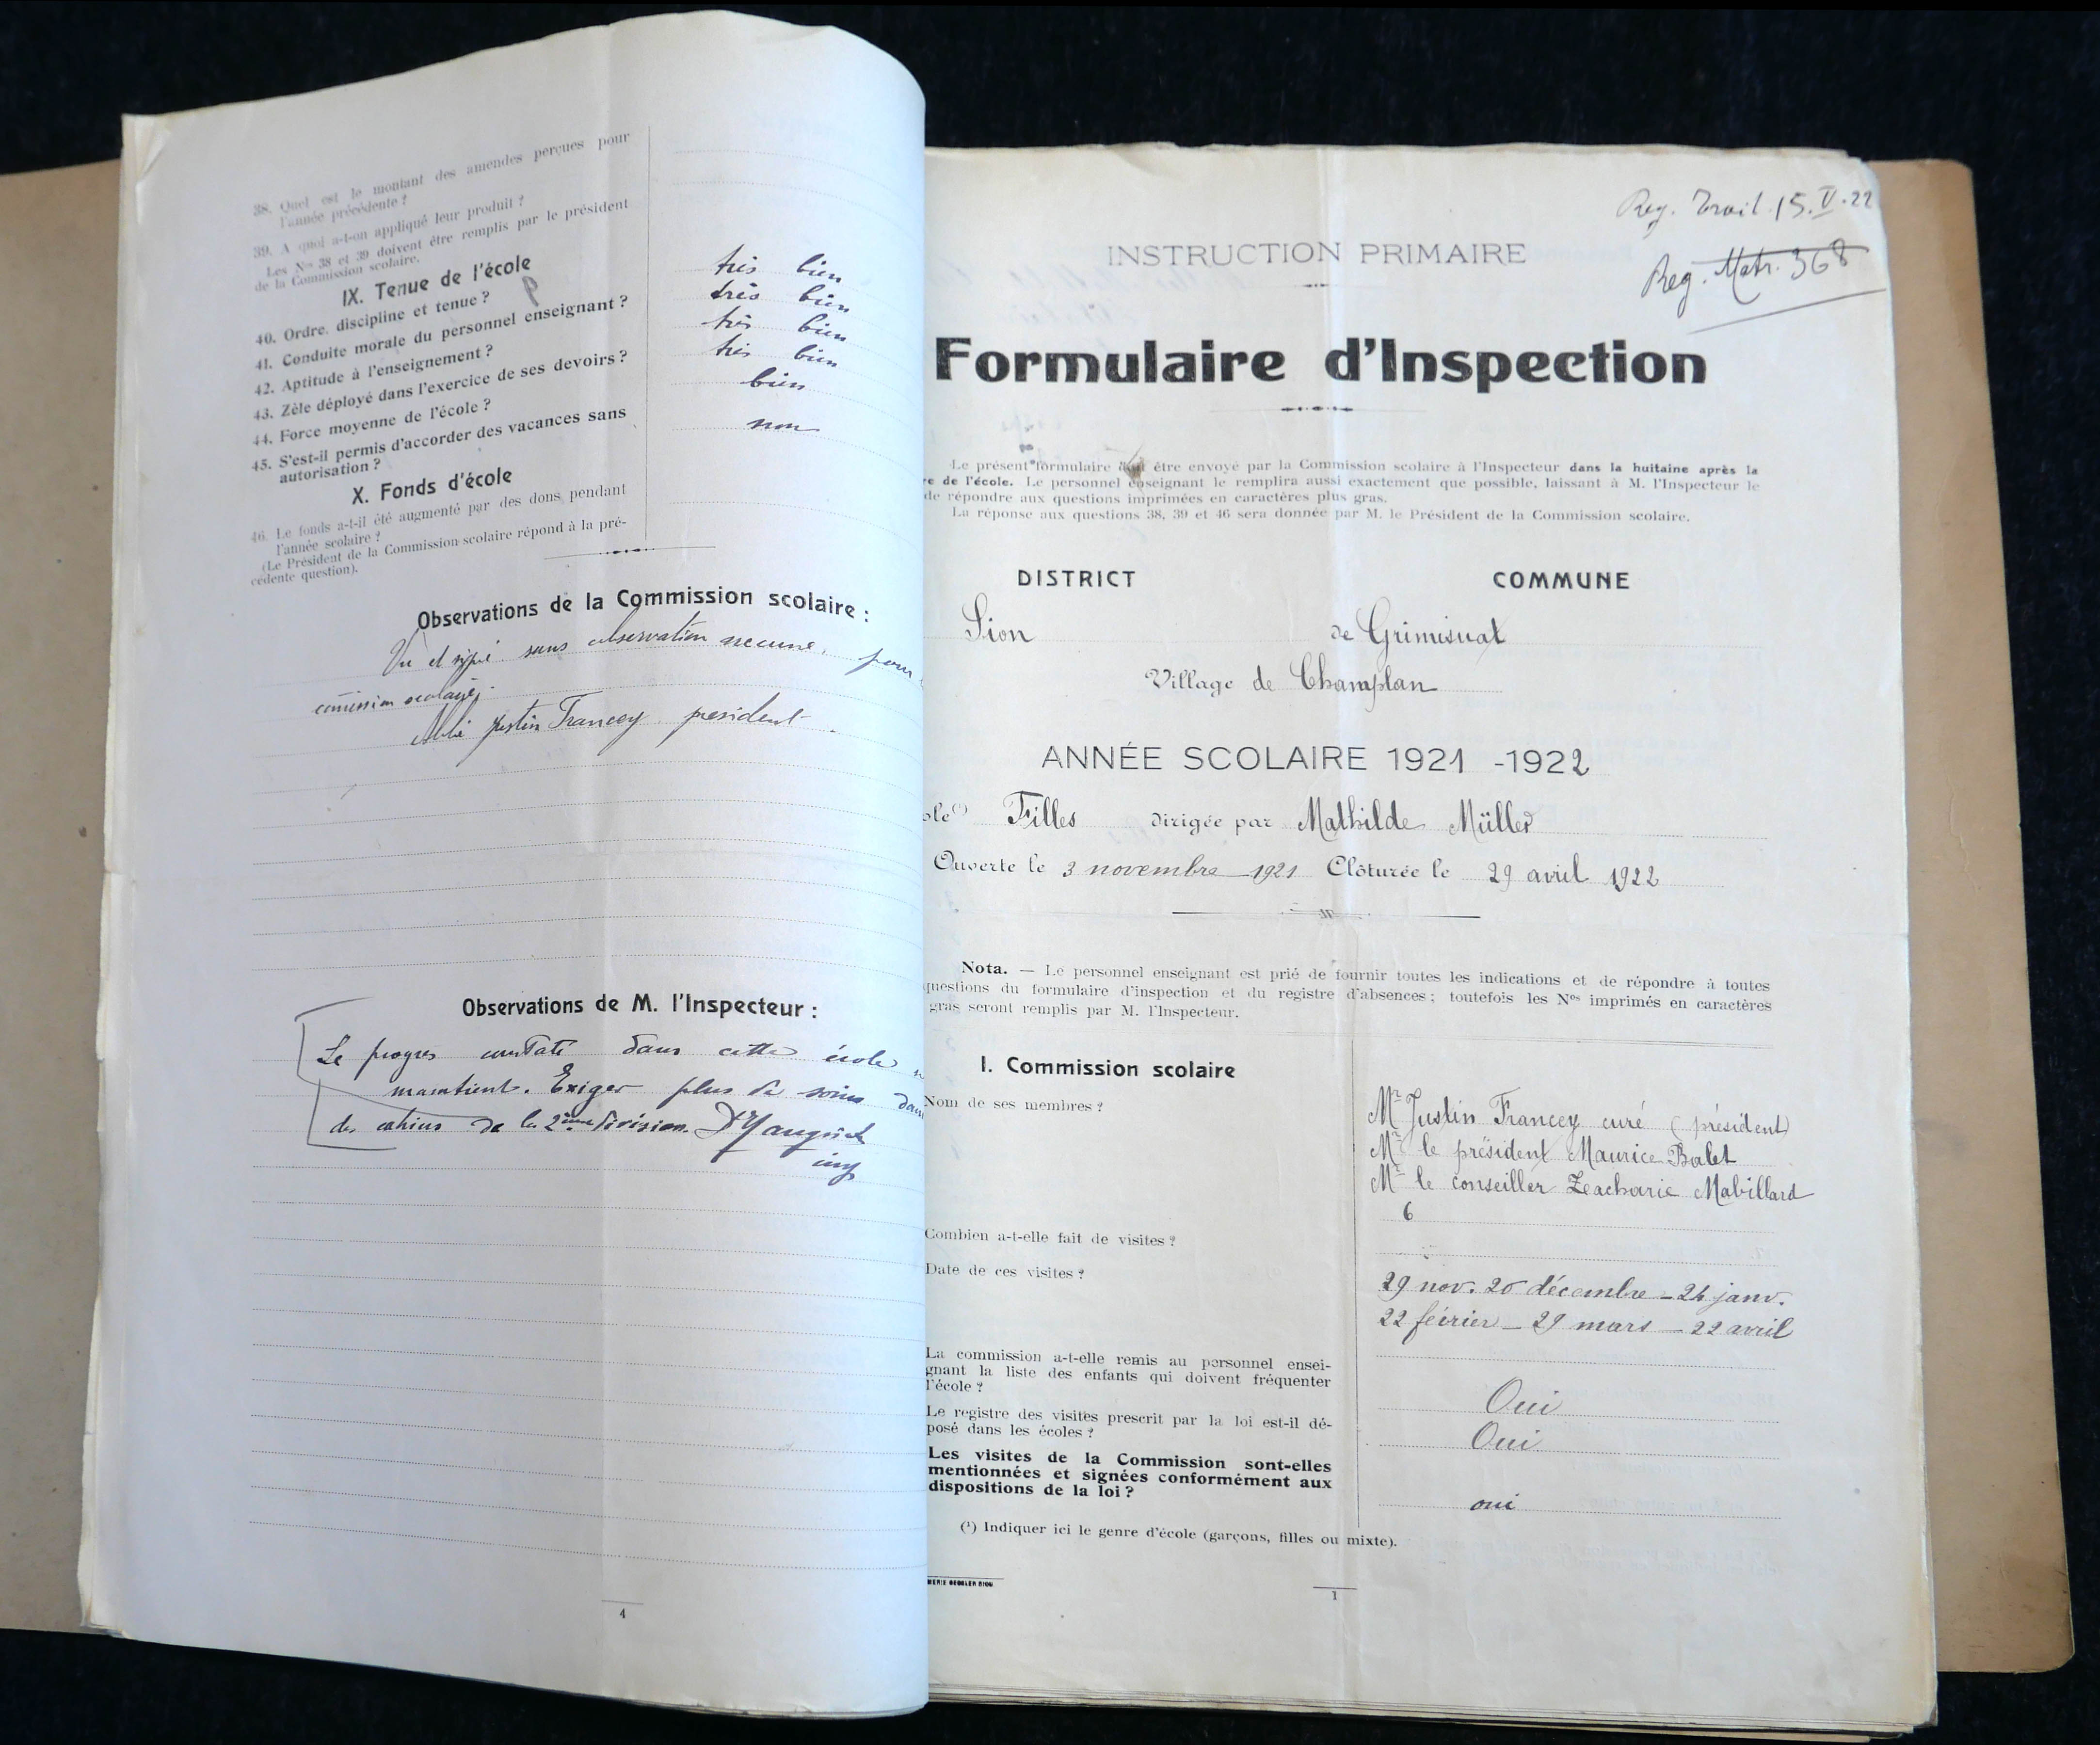 38. Quel est le montant des amendes perçues pour
l'année précédente ?
39. A quoi a-t-on appliqué leur produit ?
Les Nos 38 et 39 doivent être remplis par le président
de la Commission scolaire.
IX. Tenue de l'école
40. Ordre, discipline et tenue ? très bien
41. Conduite morale du personnel enseignant ? très bien
42. Aptitude à l'enseignement ? très bien
43. Zèle déployé dans l'exercice de ses devoirs ? très bien
44. Force moyenne de l'école ? bien
45. S'est-il permis d'accorder des vacances sans
autorisation ? non
X. Fonds d'école
46. Le fonds a-t-il été augmenté par des dons pendant
l'année scolaire ?
(Le Président de la Commission scolaire répond à la pré-
cédente question).
Observations de la Commission scolaire :
Vu et signé sans observation aucune, pour
Abbé Justin Francey président
Observations de M. l'Inspecteur :
Le progrès constaté dans cette école
maintient. Exiger plus de soins dans
des cahiers de la 2ème division.
insp
4
Reg. Trait. 15.V.22
Reg. Matr. 368
INSTRUCTION PRIMAIRE
Formulaire d'Inspection
Le présent formulaire doit être envoyé par la Commission scolaire à l'Inspecteur dans la huitaine après la
re de l'école. Le personnel enseignant le remplira aussi exactement que possible, laissant à M. l'Inspecteur le
de répondre aux questions imprimées en caractères plus gras.
La réponse aux questions 38, 39 et 46 sera donnée par M. le Président de la Commission scolaire.
DISTRICT COMMUNE
Sion de Grimisuat
Village de Champlan
ANNÉE SCOLAIRE 1921 -1922
ole (1) Filles dirigée par Mathilde Müller
Ouverte le 3 novembre 1921 Clôturée le 29 avril 1922
Nota. — Le personnel enseignant est prié de fournir toutes les indications et de répondre à toutes
questions du formulaire d'inspection et du registre d'absences ; toutefois les Nos imprimés en caractères
gras seront remplis par M. l'Inspecteur.
I. Commission scolaire
Nom de ses membres ?
Mr Justin Francey curé (président)
Mr le président Maurice Balet
Mr le conseiller Zeacharie Mabillard
6
Combien a-t-elle fait de visites ?
Date de ces visites ?
29 nov. 20 décembre - 24 janv.
22 février - 29 mars - 22 avril
La commission a-t-elle remis au personnel ensei-
gnant la liste des enfants qui doivent fréquenter
l'école ? Oui
Le registre des visites prescrit par la loi est-il dé-
posé dans les écoles ? Oui
Les visites de la Commission sont-elles
mentionnées et signées conformément aux
dispositions de la loi ? oui
(1) Indiquer ici le genre d'école (garçons, filles ou mixte).
MERIE GESSLER SION
1